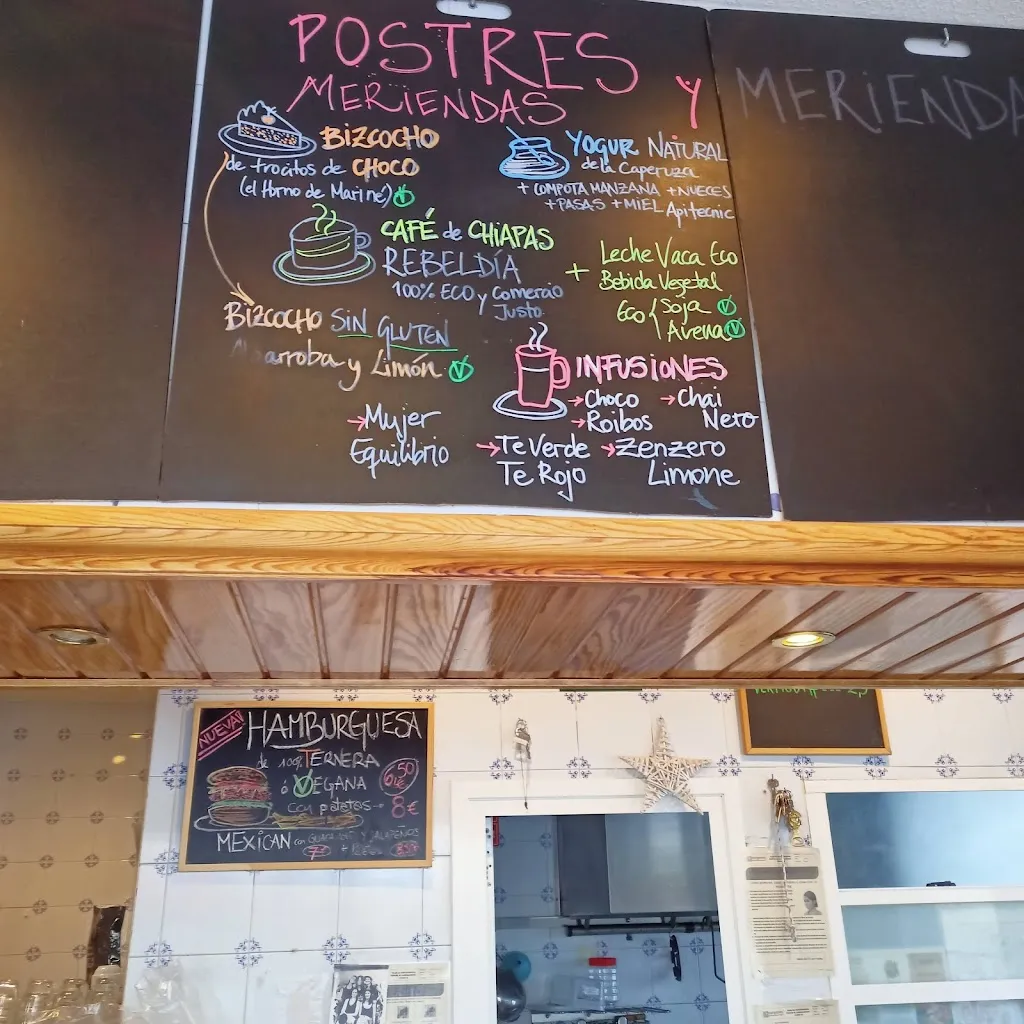 POSTRES Y
MERIENDAS
BIZCOCHO
de trocitos de CHOCO
(el Horno de Marine)
YOGUR NATURAL
de la Caperuza
+ COMPOTA MANZANA + NUECES
+ PASAS + MIEL Apitecnic
CAFÉ de CHIAPAS
REBELDÍA
100% ECO y Comercio
Justo
+ Leche Vaca Eco
Bebida Vegetal
Eco { Soja
Avena
BIZCOCHO SIN GLUTEN
y Limón
INFUSIONES
→ Choco
→ Roibos
→ Chai
Nero
→ Mujer
Equilibrio
→ Te Verde
Te Rojo
→ Zenzero
Limone
MERIENDA
¡NUEVA!
HAMBURGUESA
de 100% TERNERA
ó VEGANA
6,50€
con patatas → 8€
MEXICAN con GUACAMOLE Y JALAPEÑOS